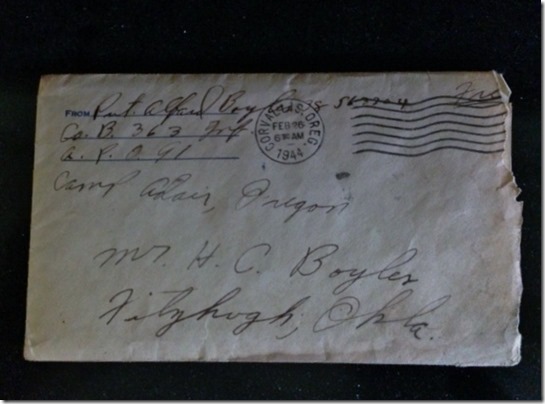 FROM Pvt. Alfred Boyles 
Co. B 363 Inf
A. P. O. 91
Camp Adair, Oregon
Free
CORVALLIS, OREG.
FEB 26
AM
1944
Mr. H. C. Boyles
Fitzhugh, Okla.